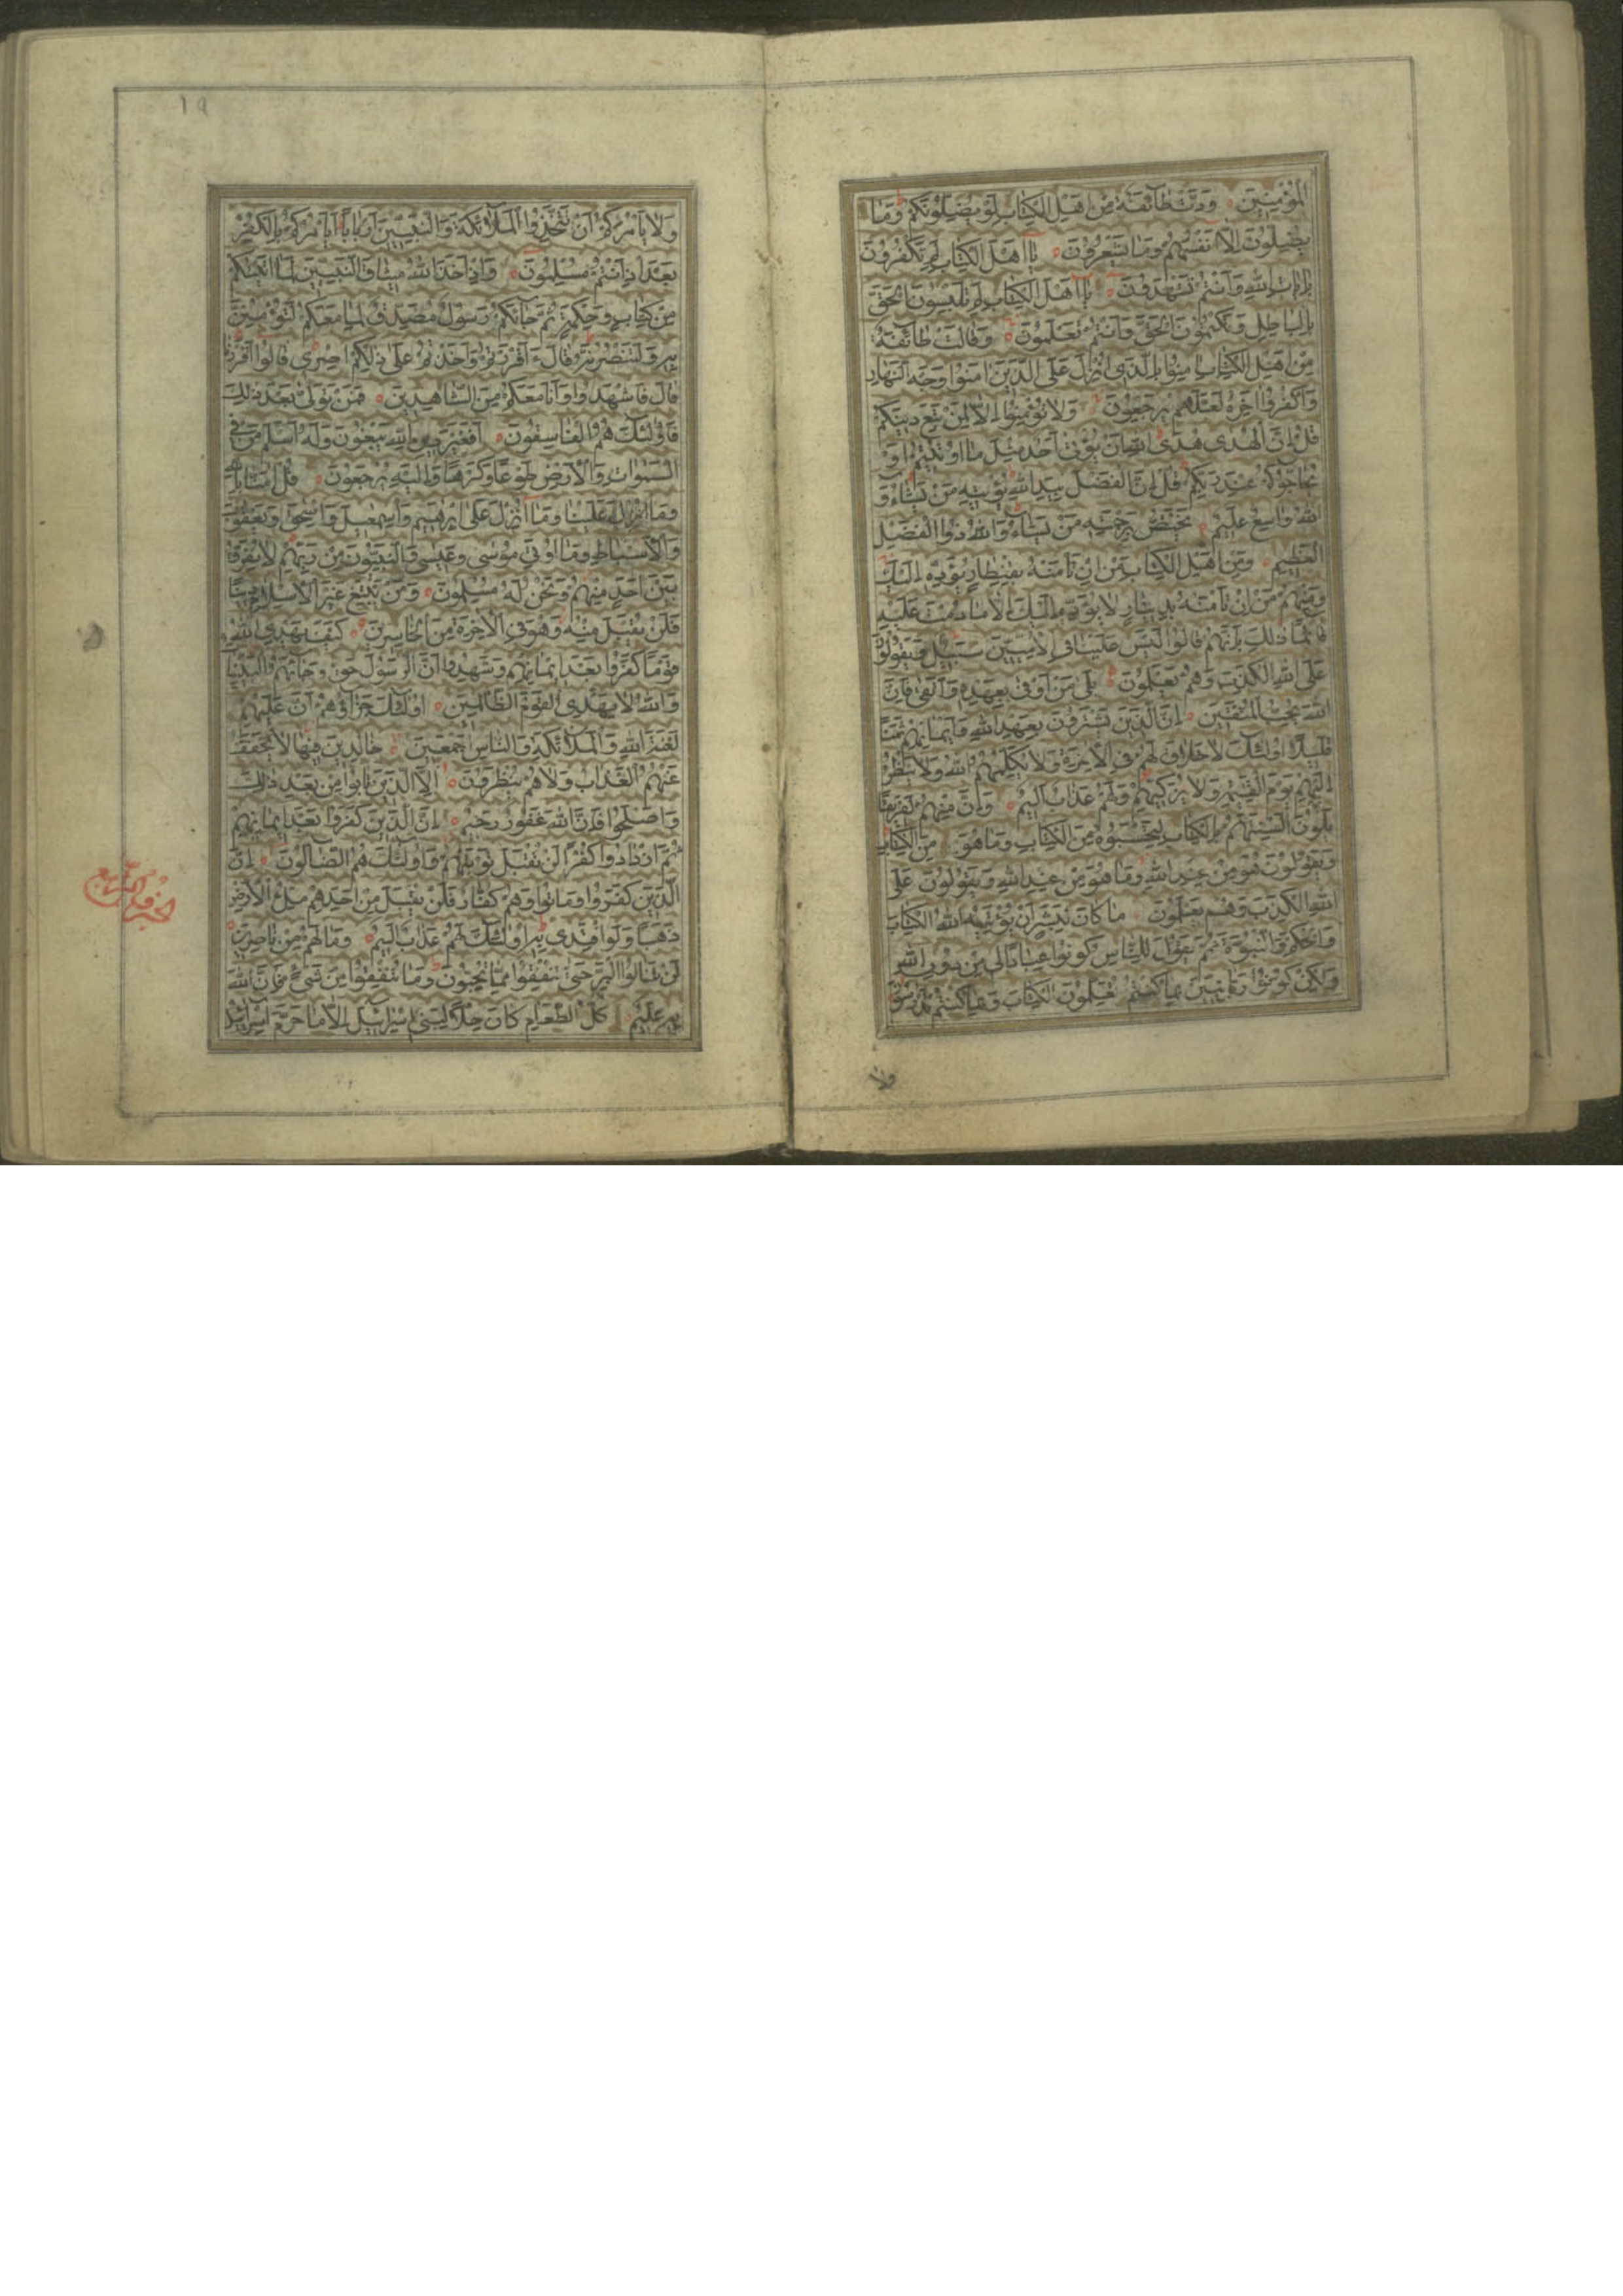 المؤمنين ودت طائفة من اهل الكتاب لو يضلونكم وما
يضلون الا انفسهم وما يشعرون يا اهل الكتاب لم تكفرون
بايات الله وانتم تشهدون يا اهل الكتاب لم تلبسون الحق
بالباطل وتكتمون الحق وانتم تعلمون وقالت طائفة
من اهل الكتاب امنوا بالذي انزل على الذين امنوا وجه النهار
واكفروا اخره لعلهم يرجعون ولا تؤمنوا الا لمن تبع دينكم
قل ان الهدى هدى الله ان يؤتى احد مثل ما اوتيتم او
يحاجوكم عند ربكم قل ان الفضل بيد الله يؤتيه من يشاء و
الله واسع عليم يختص برحمته من يشاء والله ذوا الفضل
العظيم ومن اهل الكتاب من ان تامنه بقنطار يؤده اليك
ومنهم من ان تامنه بدينار لا يؤده اليك الا ما دمت عليه
قائما ذلك بانهم قالوا ليس علينا في الاميين سبيل ويقولون
على الله الكذب وهم يعلمون بلى من اوفى بعهده واتقى فان
الله يحب المتقين ان الذين يشترون بعهد الله وايمانهم ثمنا
قليلا اولئك لا خلاق لهم في الاخرة ولا يكلمهم الله ولا ينظر
اليهم يوم القيمة ولا يزكيهم ولهم عذاب اليم وان منهم لفريقا
يلون السنتهم بالكتاب لتحسبوه من الكتاب وما هو من الكتاب
ويقولون هو من عند الله وما هو من عند الله ويقولون على
الله الكذب وهم يعلمون ما كان لبشر ان يؤتيه الله الكتاب
والحكم والنبوة ثم يقول للناس كونوا عبادا لي من دون الله
ولكن كونوا ربانيين بما كنتم تعلمون الكتاب وبما كنتم تدرسون
ولا
١٩
ولا يامركم ان تتخذوا الملائكة والنبيين اربابا ايامركم بالكفر
بعد اذ انتم مسلمون واذ اخذ الله ميثاق النبيين لما اتيتكم
من كتاب وحكمة ثم جائكم رسول مصدق لما معكم لتؤمنن
به ولتنصرنه قال ءاقررتم واخذتم على ذلكم اصري قالوا اقررنا
قال فاشهدوا وانا معكم من الشاهدين فمن تولى بعد ذلك
فاولئك هم الفاسقون افغير دين الله يبغون وله اسلم من في
السموات والارض طوعا وكرها واليه يرجعون قل امنا بالله
وما انزل علينا وما انزل على ابرهيم واسمعيل واسحق ويعقوب
والاسباط وما اوتي موسى وعيسى والنبيون من ربهم لا نفرق
بين احد منهم ونحن له مسلمون ومن يبتغ غير الاسلام دينا
فلن يقبل منه وهو في الاخرة من الخاسرين كيف يهدي الله
قوما كفروا بعد ايمانهم وشهدوا ان الرسول حق وجائهم البينات
والله لا يهدي القوم الظالمين اولئك جزاؤهم ان عليهم
لعنة الله والملائكة والناس اجمعين خالدين فيها لا يخفف
عنهم العذاب ولا هم ينظرون الا الذين تابوا من بعد ذلك
واصلحوا فان الله غفور رحيم ان الذين كفروا بعد ايمانهم
ثم ازدادوا كفرا لن تقبل توبتهم واولئك هم الضالون ان
الذين كفروا وماتوا وهم كفار فلن يقبل من احدهم ملئ الارض
ذهبا ولو افتدى به اولئك لهم عذاب اليم وما لهم من ناصرين
لن تنالوا البر حتى تنفقوا مما تحبون وما تنفقوا من شيء فان الله
به عليم كل الطعام كان حلا لبني اسرائيل الا ما حرم اسرائيل
الجزء الرابع